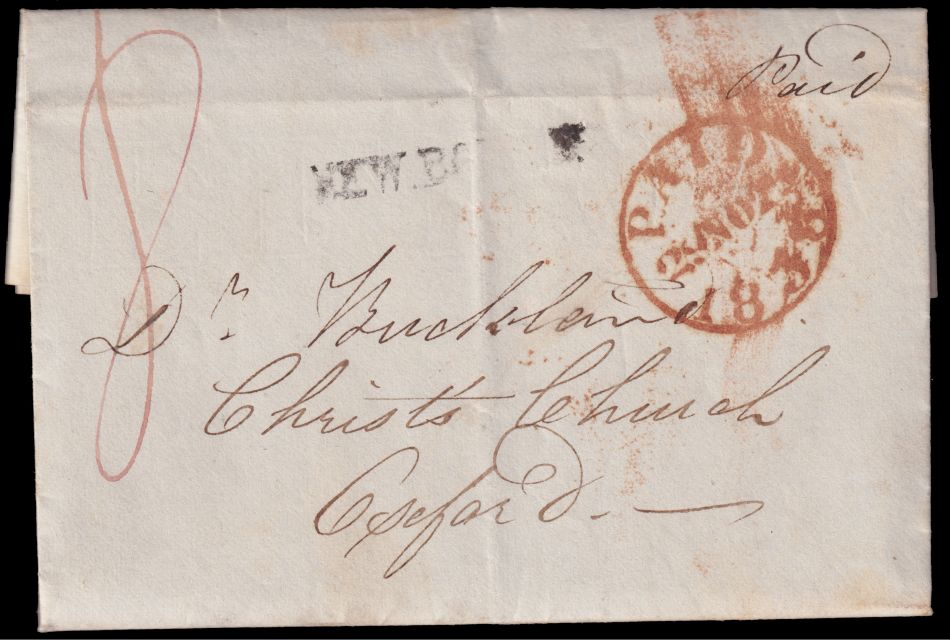 Paid
8
NEW.BO
PAID
NO
183
Dr. Buckland
Christ's Church
Oxford.